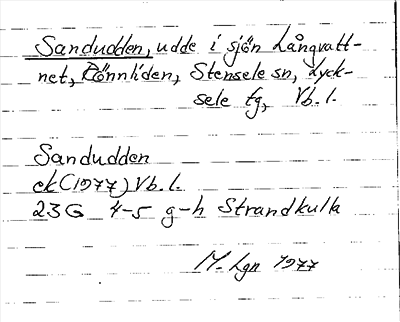 Sandudden, udde i sjön Långvatt-
net, Rönnliden, Stensele sn, Lyck-
sele tg, Vb. l.
Sandudden
ek (1977) Vb. l.
23G 4-5 g-h Strandkulla
M. Lgn 1977